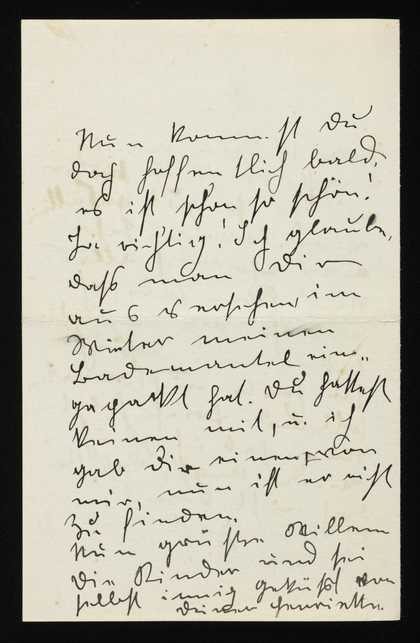 Nun kommst Du
doch hoffentlich bald,
es ist schon so schön!
Ja richtig! Ich glaube,
dass man Dir
aus Versehen, im
Winter meinen
Bademantel, ein-
gepackt hat. Du hattest
keinen mit, u. ich
gab Dir einen, von
mir, nun ist er nicht
zu finden.
Nun grüsse Willem
die Kinder und sei
selbst innig geküsst von
Deiner Henriette.